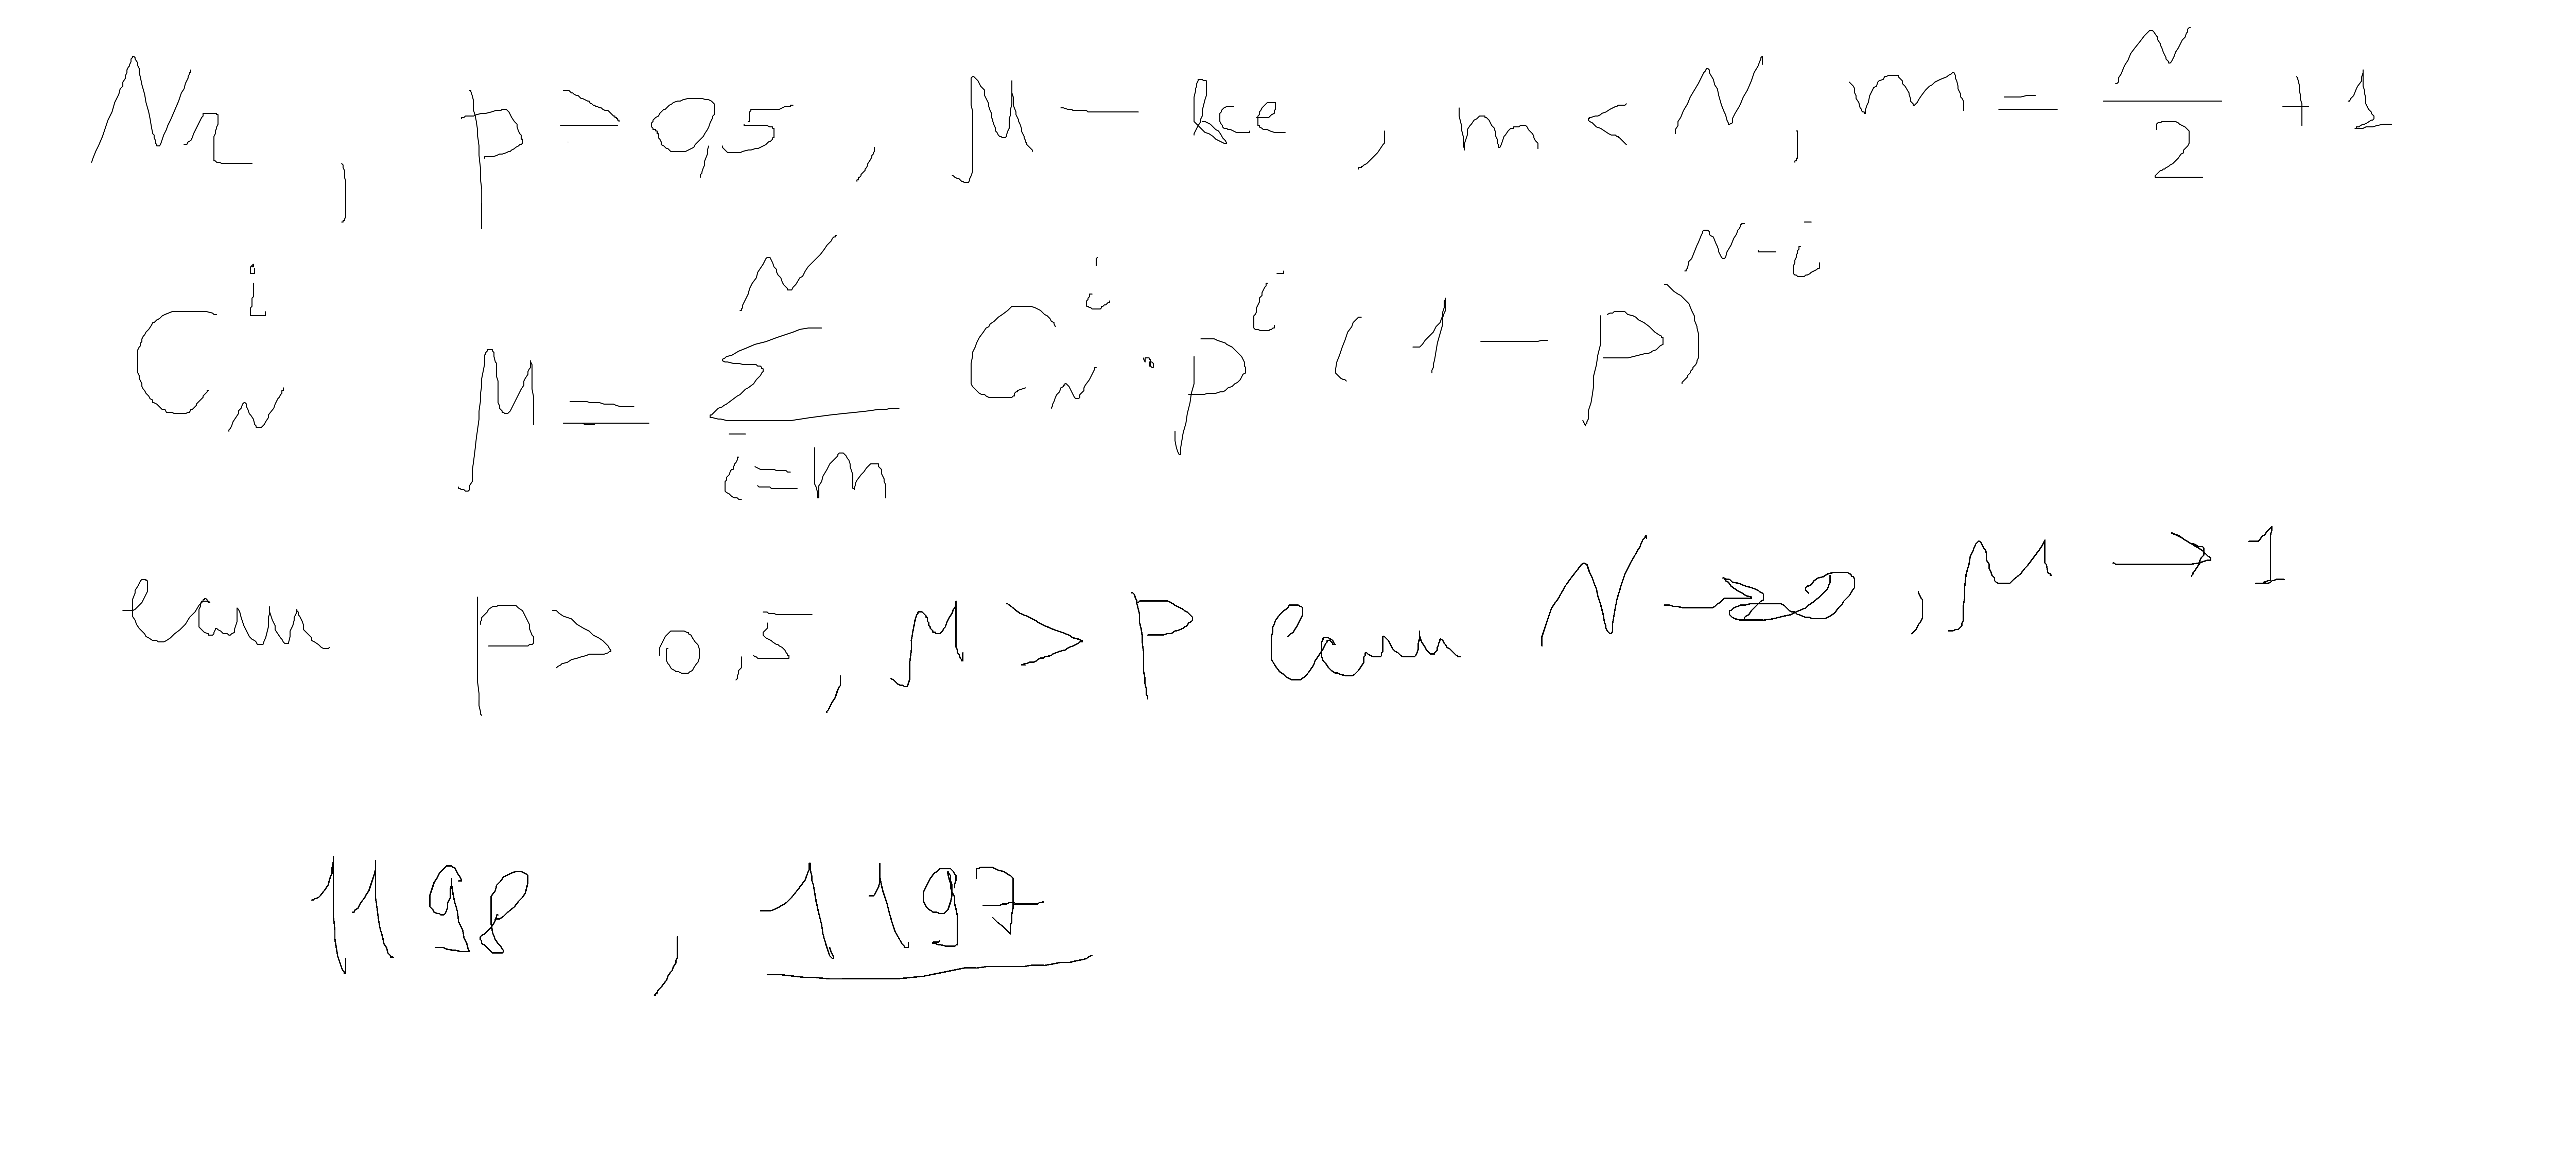 Nг, p > 0,5, M — все, m < N, m = N/2 + 1
C_N^i μ = ∑_{i=m}^{N} C_N^i · p^i (1 − p)^{N−i}
если p > 0,5, μ > p если N → ∞, μ → 1
1198, 1197